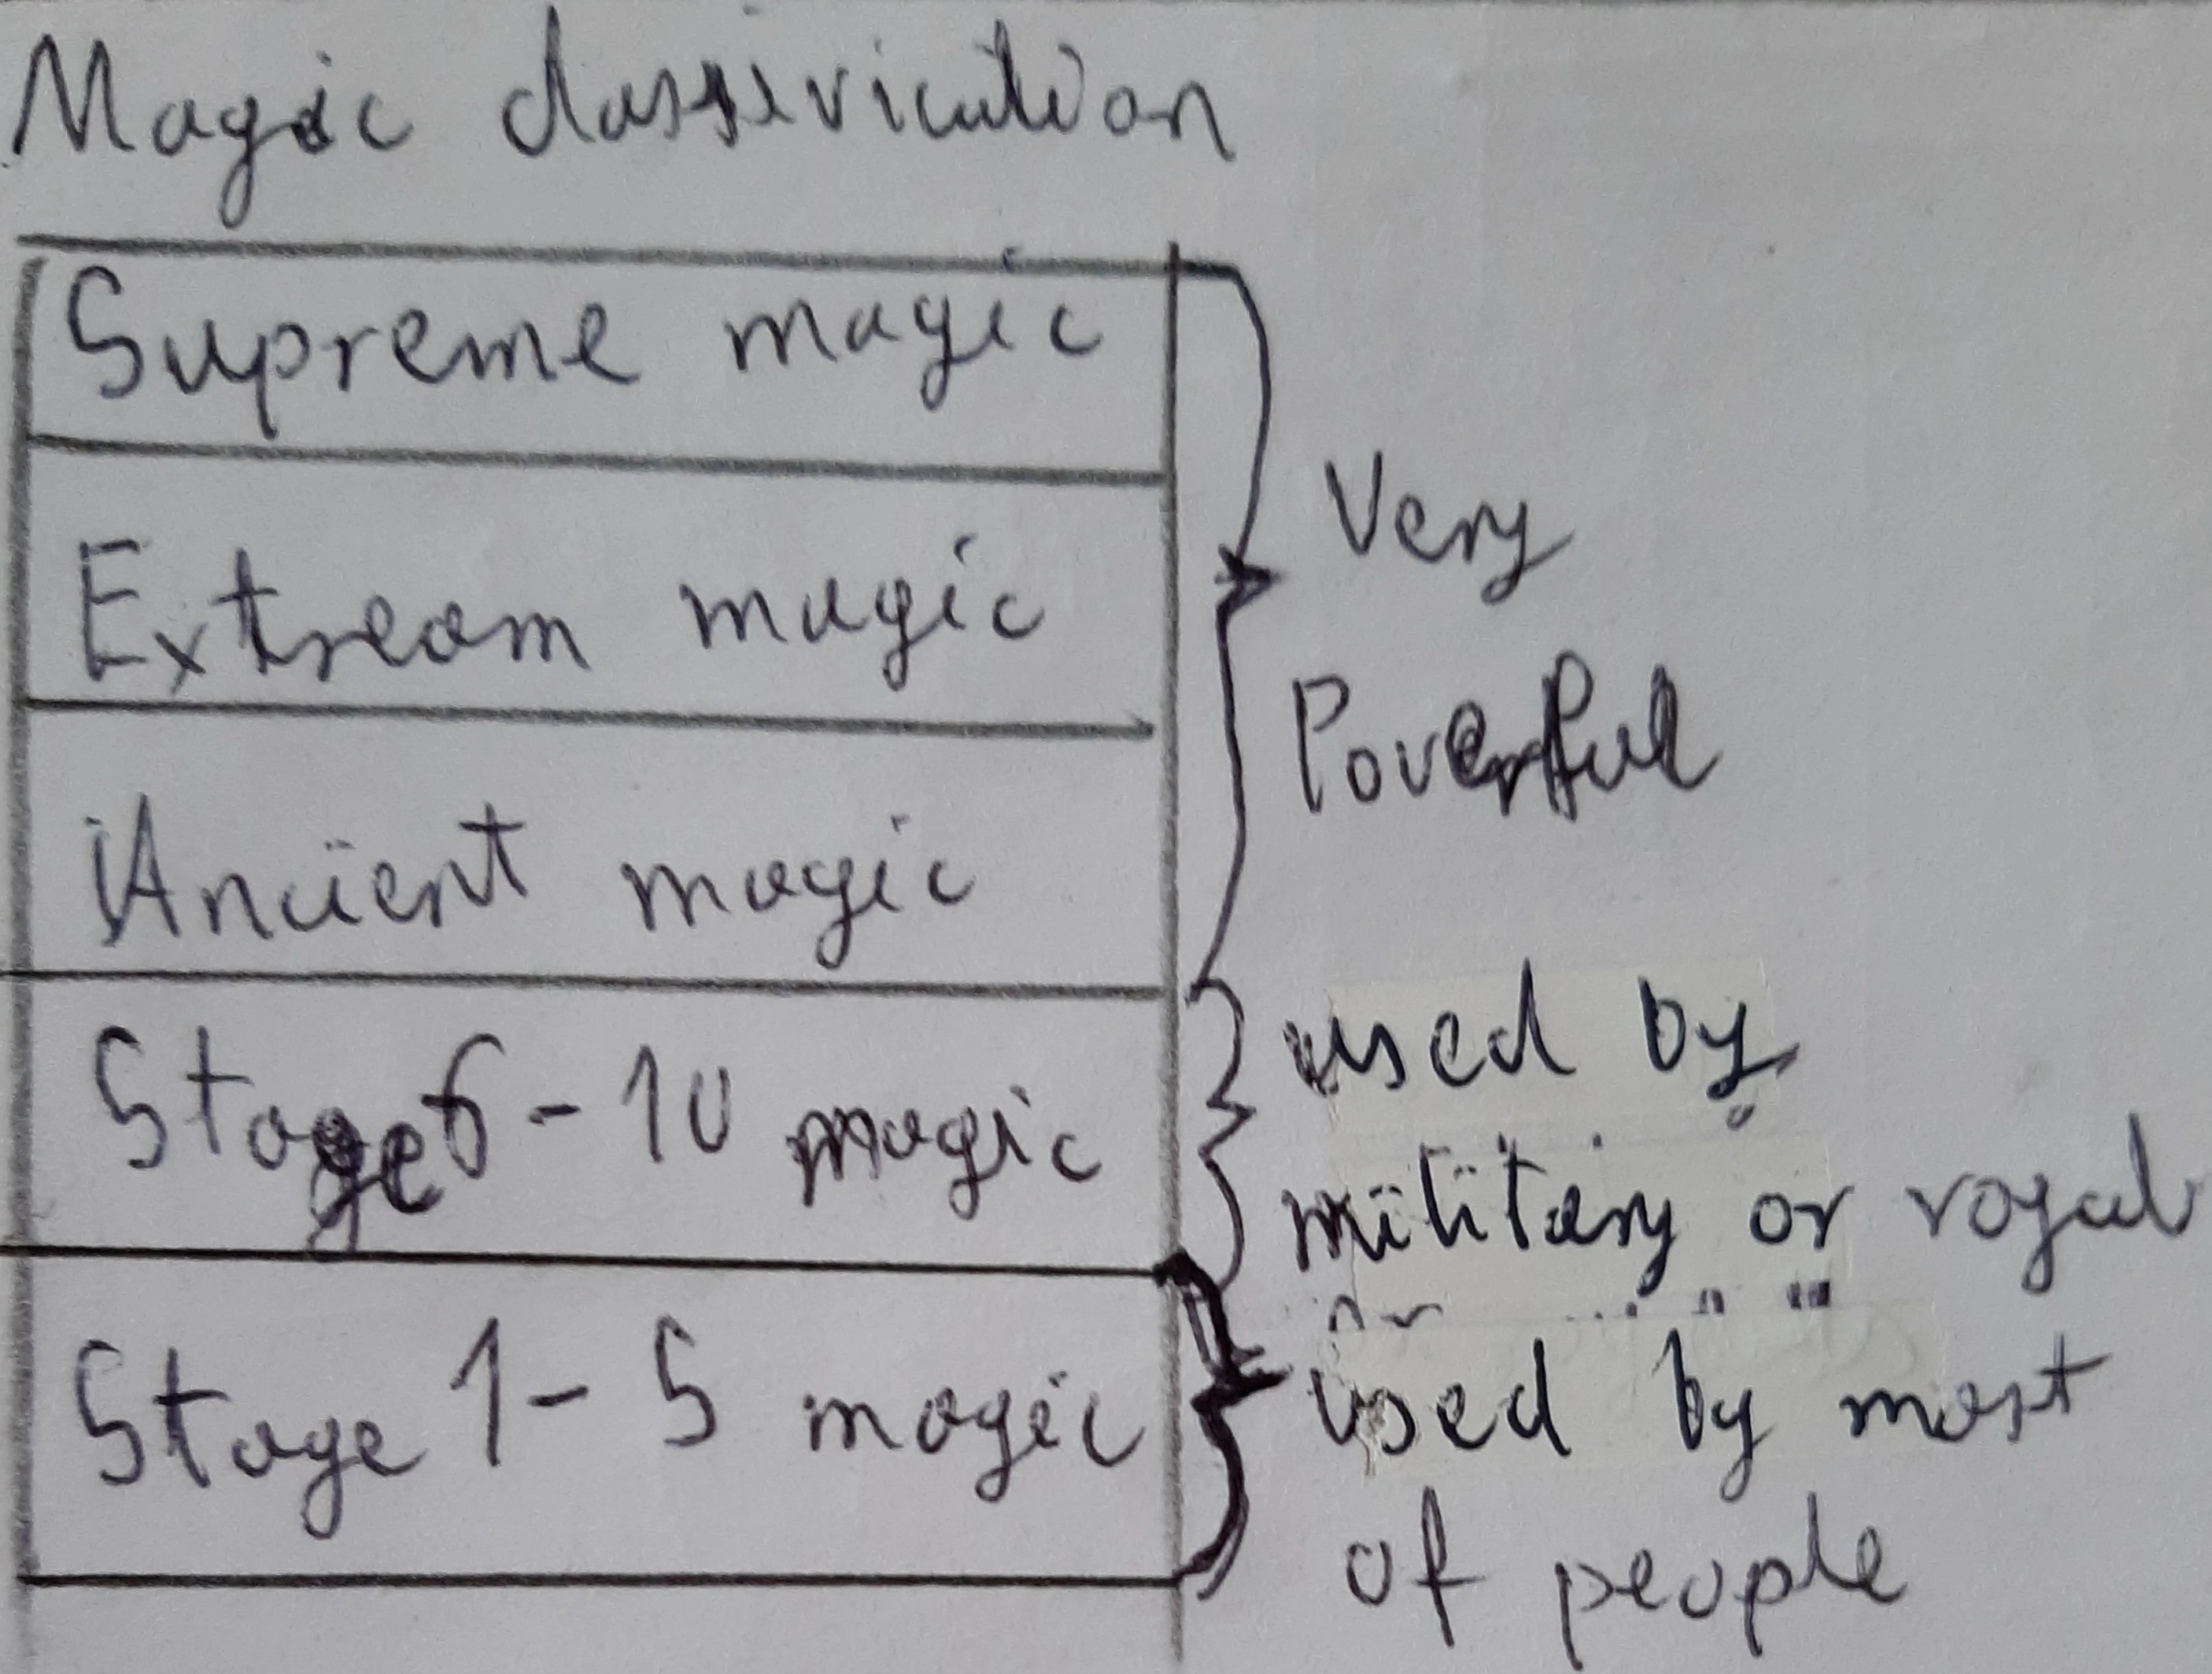 Magic classivication
Supreme magic
Extream magic
Ancient magic
Stage 6-10 magic
Stage 1-5 magic
Very
Poverful
used by
military or royal
used by most
of people